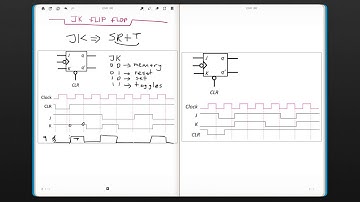 JK FLIP FLOP
JK ⇒ SR+T
J Q
K Q
CLR
JK
0 0 → memory
0 1 → reset
1 0 → set
1 1 → toggles
Clock
CLR
J
K
Q
J Q
K Q
CLR
Clock
J
K
CLR